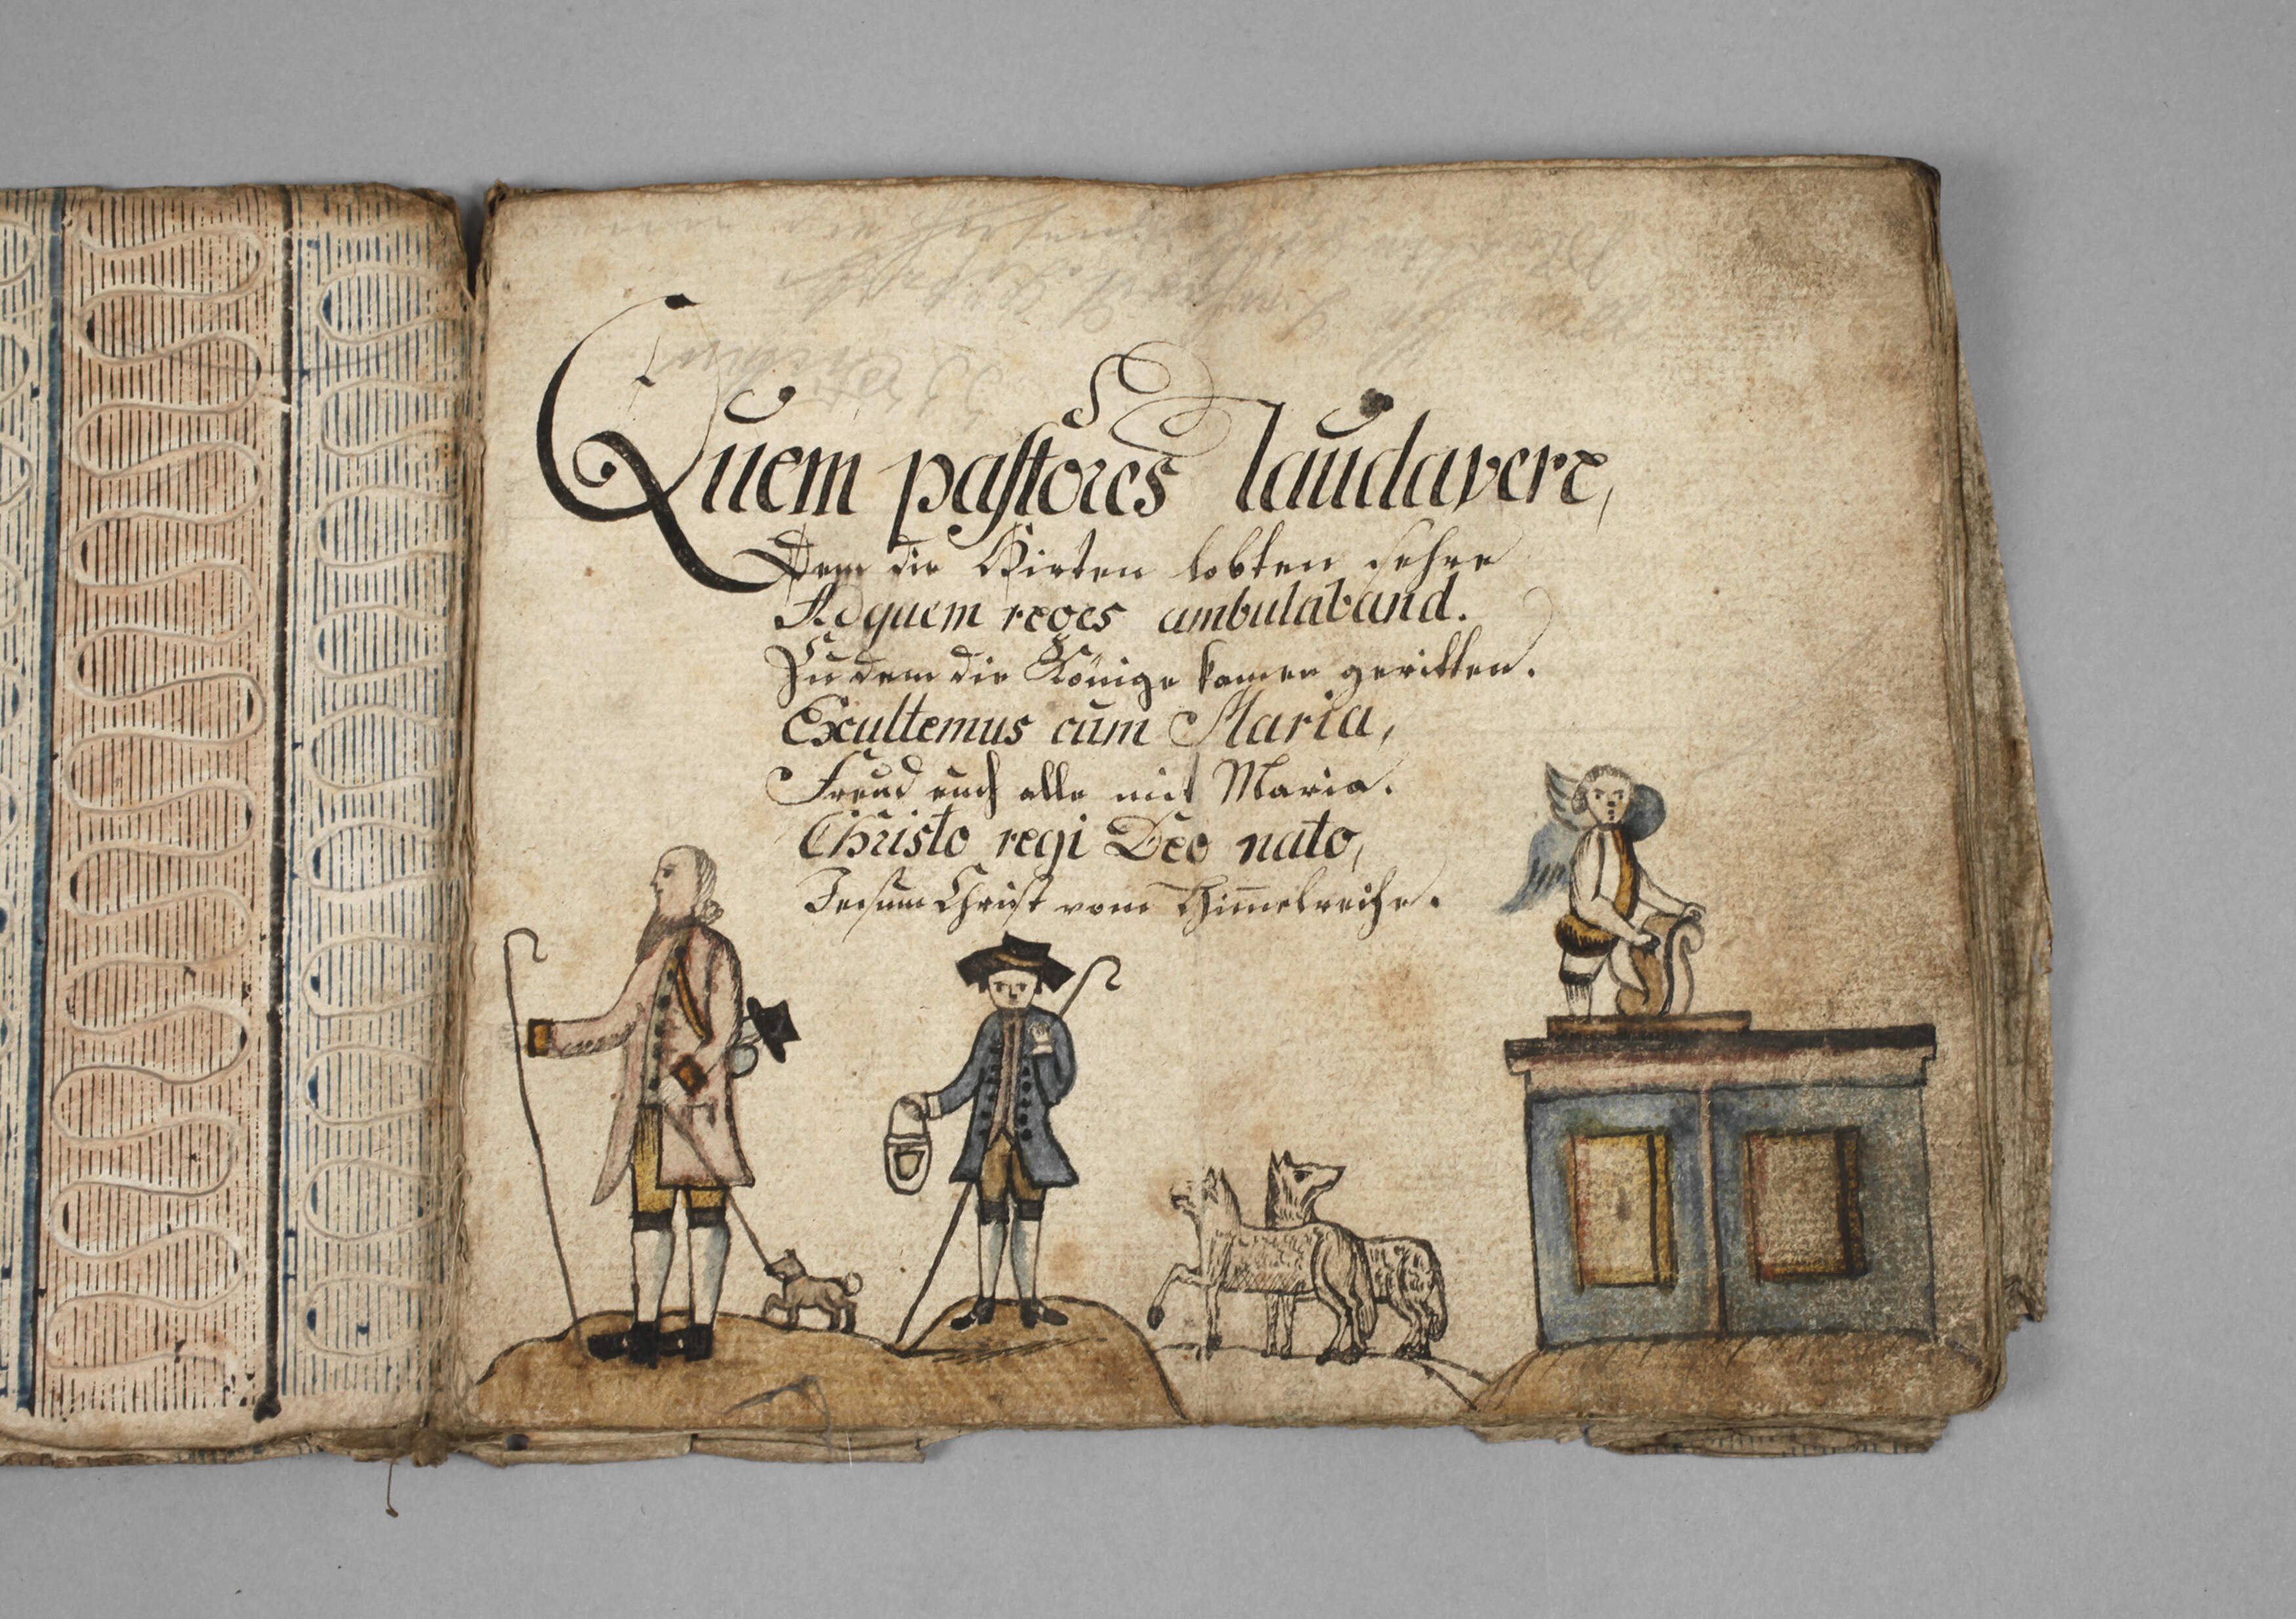 Quem pastores laudavere,
Dem die Hirten lobten sehre
Ad quem reges ambulaband.
Zu dem die Könige kamen geritten.
Exultemus cum Maria,
Freud euch alle mit Maria.
Christo regi Deo nato,
Jesum Christ vom Him̅elreiche.